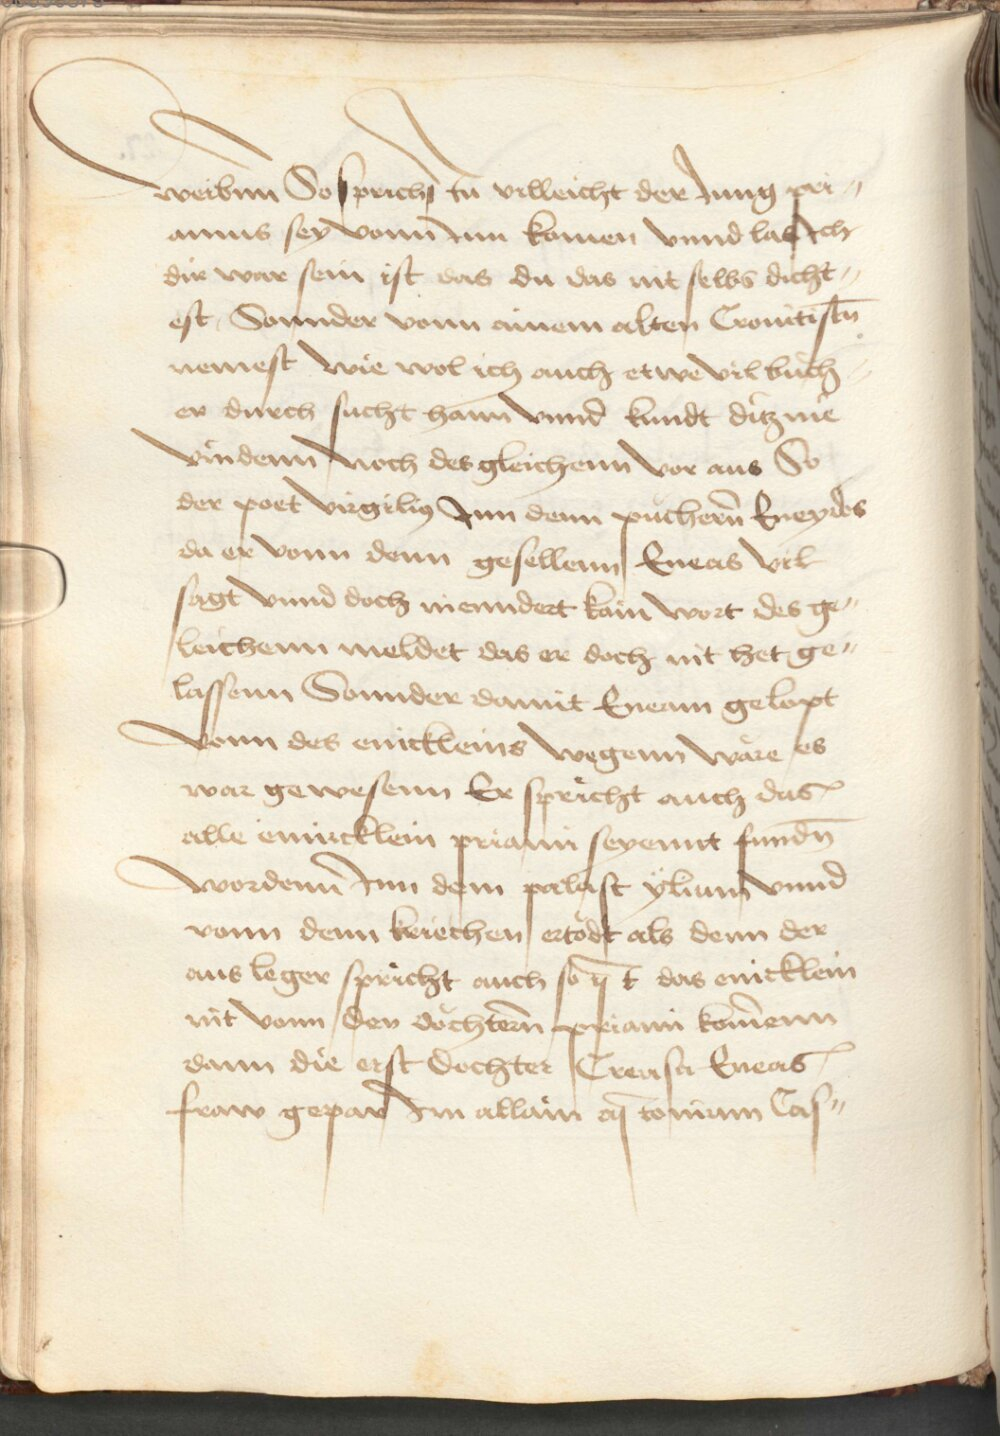 weibnn So sprichs tu villeicht der Jung pri„
amus sey vonn Jm komen vnnd las Jch
dir war sein ist das du das nit selbs dicht„
est Sonnder vonn ainem alten Cronicistn̄
nemest wie wol ich auch etwe vil buch„
er durch sucht hann vnnd kundt ditz nie
vindenn noch des gleichenn vor aus So
der poet virgilius Jnn denn püchern̄ Eneydes
da er vonn denn gesellenn Eneas vil
sagt vnnd doch nienndert kain wort des ge„
leichenn meldet das er doch nit het ge„
lassenn Sonnder damit Eneam gelopt
wonn des enickleins wegenn wäre es
war gewesenn Er spricht auch das
alle enircklein priami seyennt fundn̄
wordenn Jnn dem palast ylium vnnd
vonn denn kriechen ertödt als denn der
aus leger spricht auch so q̄ t das enicklein
nit vonn den döchtern̄ priami kom̄enn
dann die erst dochter Creusa Eneas
fraw gepar Jm allain as̄tonium Cas„